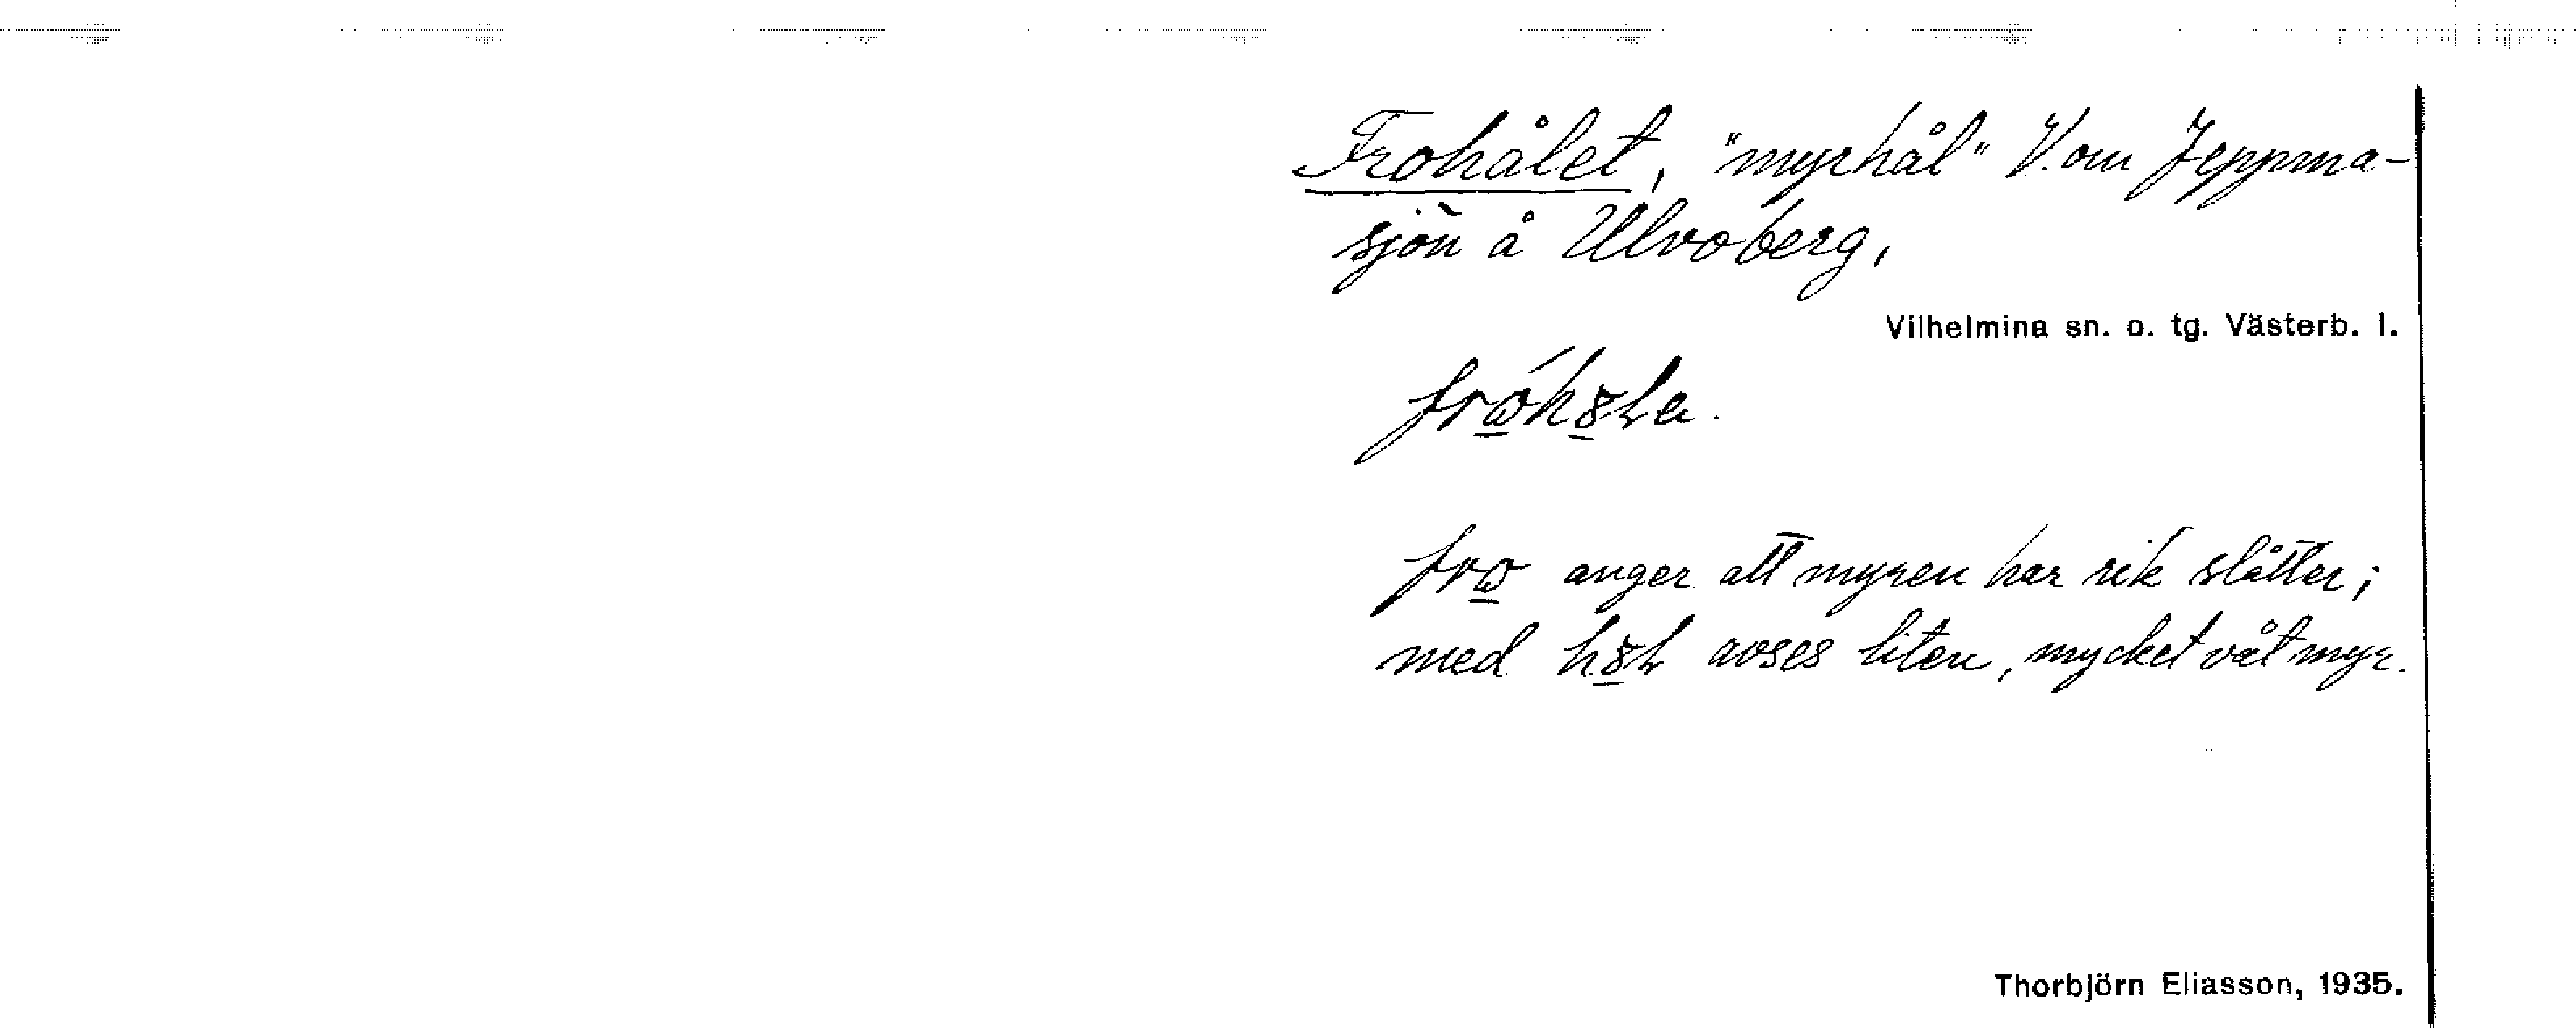 Frohålet, "myrhål" V. om Jeppma-
sjön å Ulvoberg,
Vilhelmina sn. o. tg. Västerb. l.
anger att myren har rik slåtter;
med avses liten, mycket våt myr.
Thorbjörn Eliasson, 1935.